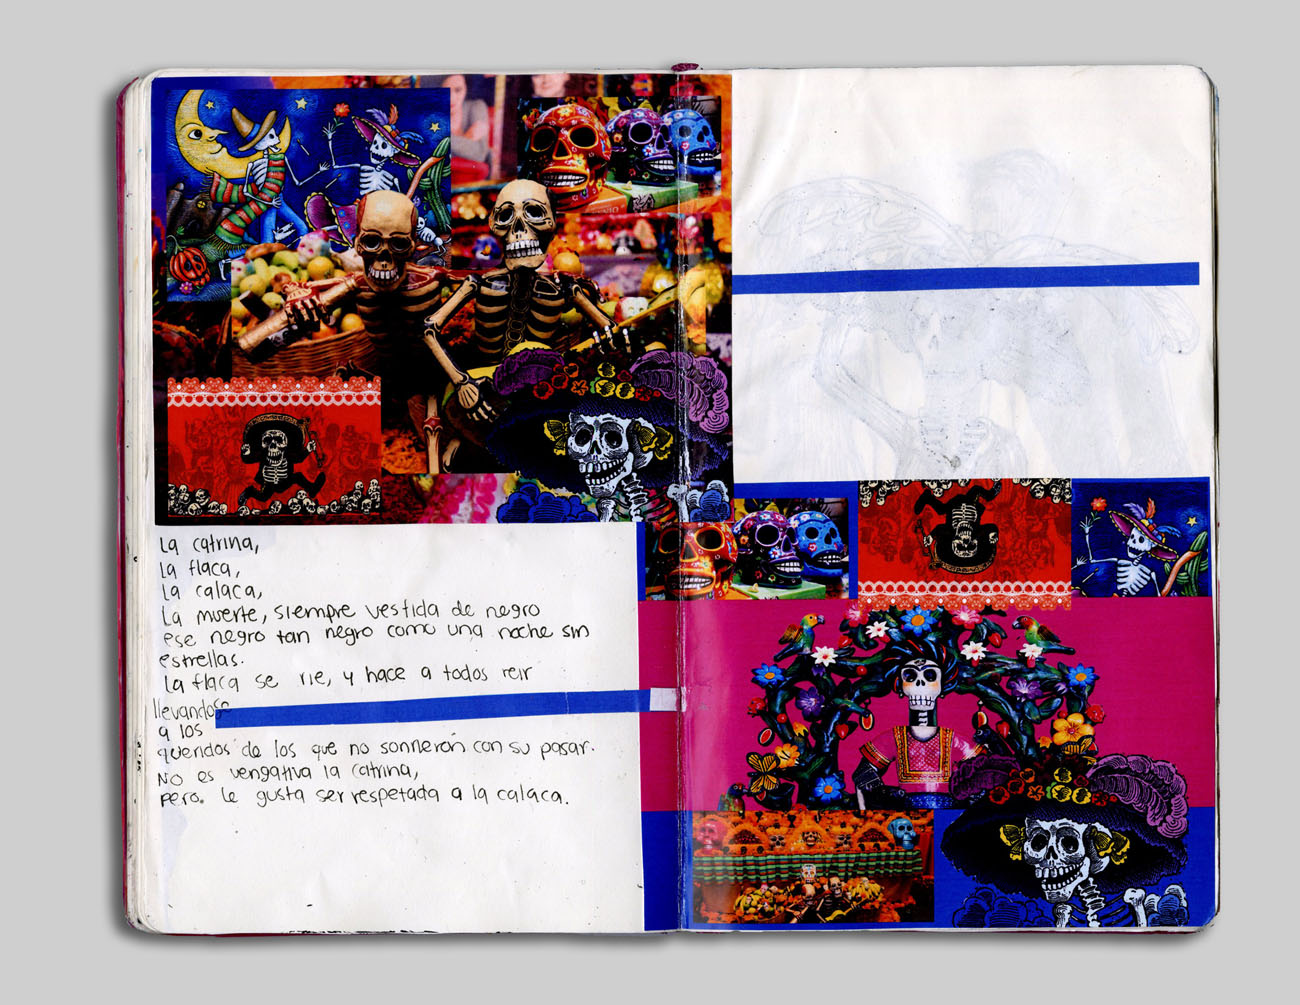 La catrina,
La flaca,
La calaca,
La muerte, siempre vestida de negro
ese negro tan negro como una noche sin
estrellas.
La flaca se rie, y hace a todos reir
llevandose
a los
queridos de los que no sonrieron con su pasar.
No es vengativa la catrina,
pero. le gusta ser respetada a la calaca.